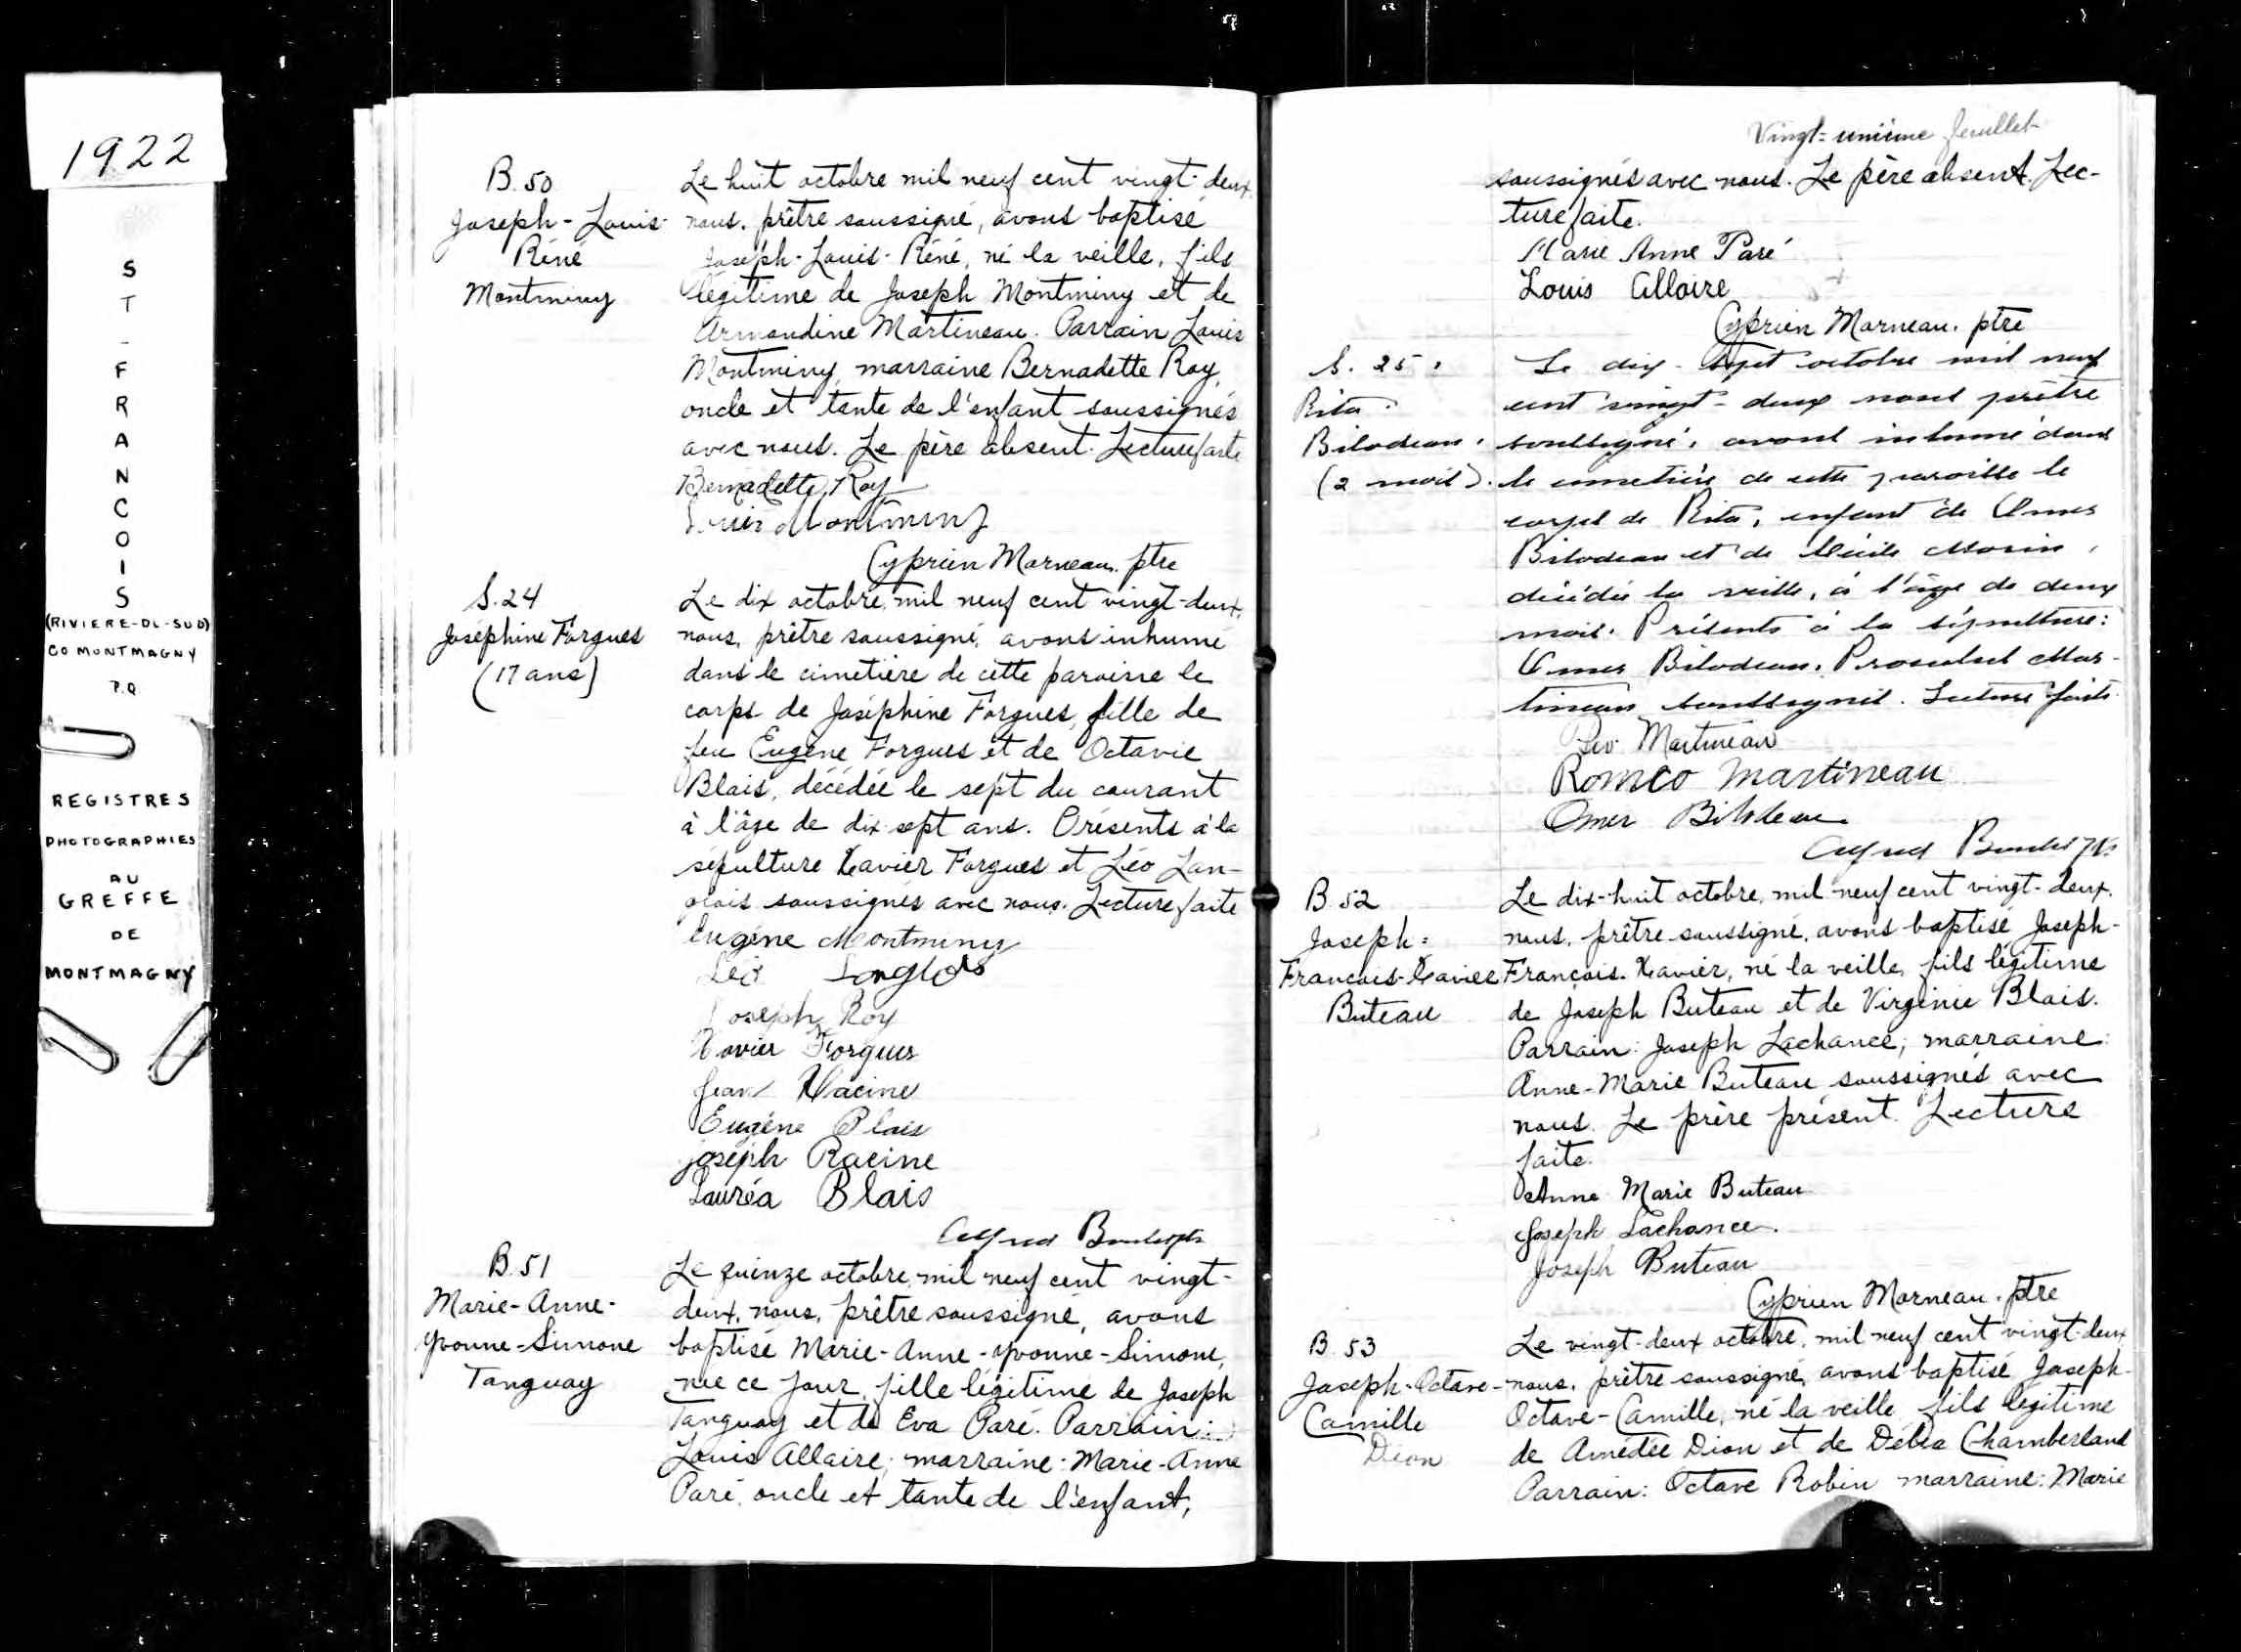 1922
ST-FRANCOIS
(RIVIERE-DU-SUD)
CO MONTMAGNY
P.Q.
REGISTRES
PHOTOGRAPHIES
AU
GREFFE
DE
MONTMAGNY
B. 50
Joseph-Louis-
Réné
Montminy
Le huit octobre mil neuf cent vingt-deux,
nous, prêtre soussigné, avons baptisé
Joseph-Louis-Réné, né la veille, fils
légitime de Joseph Montminy et de
Armandine Martineau. Parrain Louis
Montminy, marraine Bernadette Roy,
oncle et tante de l'enfant soussignés
avec nous. Le père absent. Lecture faite
Bernadette Roy
Louis Montminy
Cyprien Morneau, ptre
S. 24
Joséphine Forgues
(17 ans)
Le dix octobre, mil neuf cent vingt-deux,
nous, prêtre soussigné, avons inhumé
dans le cimetière de cette paroisse le
corps de Joséphine Forgues, fille de
feu Eugène Forgues et de Octavie
Blais, décédée le sept du courant
à l'âge de dix-sept ans. Présents à la
sépulture Xavier Forgues et Léo Lan-
glois soussignés avec nous. Lecture faite
Eugène Montminy
Léo Langlois
Joseph Roy
Xavier Forgues
Jean Racine
Eugène Blais
Joseph Racine
Lauréa Blais
Alfred
B. 51
Marie-Anne-
Yvonne-Simone
Tanguay
Le quinze octobre, mil neuf cent vingt-
deux, nous, prêtre soussigné, avons
baptisé Marie-Anne-Yvonne-Simone,
née ce jour, fille légitime de Joseph
Tanguay et de Eva Paré. Parrain:
Louis Allaire; marraine: Marie-Anne
Paré, oncle et tante de l'enfant,
Vingt-unième feuillet
soussignés avec nous. Le père absent. Lec-
ture faite.
Marie Anne Paré
Louis Allaire
Cyprien Morneau, ptre
S. 25.
Rita
Bilodeau.
(2 mois).
Le dix-sept octobre mil neuf
cent vingt-deux nous prêtre
soussigné, avons inhumé dans
le cimetière de cette paroisse le
corps de Rita, enfant de Omer
Bilodeau et de Cécile Morin,
décédée la veille, à l'âge de deux
mois. Présents à la sépulture:
Omer Bilodeau, Mar-
tineau soussignés. Lecture faite.
Martineau
Romeo Martineau
Omer Bilodeau
Alfred
B. 52
Joseph-
François-Xavier
Buteau
Le dix-huit octobre, mil neuf cent vingt-deux,
nous, prêtre soussigné, avons baptisé Joseph-
François-Xavier, né la veille, fils légitime
de Joseph Buteau et de Virginie Blais.
Parrain: Joseph Lachance; marraine:
Anne-Marie Buteau soussignés avec
nous. Le père présent. Lecture
faite.
Anne Marie Buteau
Joseph Lachance.
Joseph Buteau
Cyprien Morneau, ptre
B. 53
Joseph-Octave-
Camille
Dion
Le vingt-deux octobre, mil neuf cent vingt-deux
nous, prêtre soussigné, avons baptisé Joseph-
Octave-Camille, né la veille, fils légitime
de Amédée Dion et de Délia Chamberland
Parrain: Octave Robin marraine: Marie